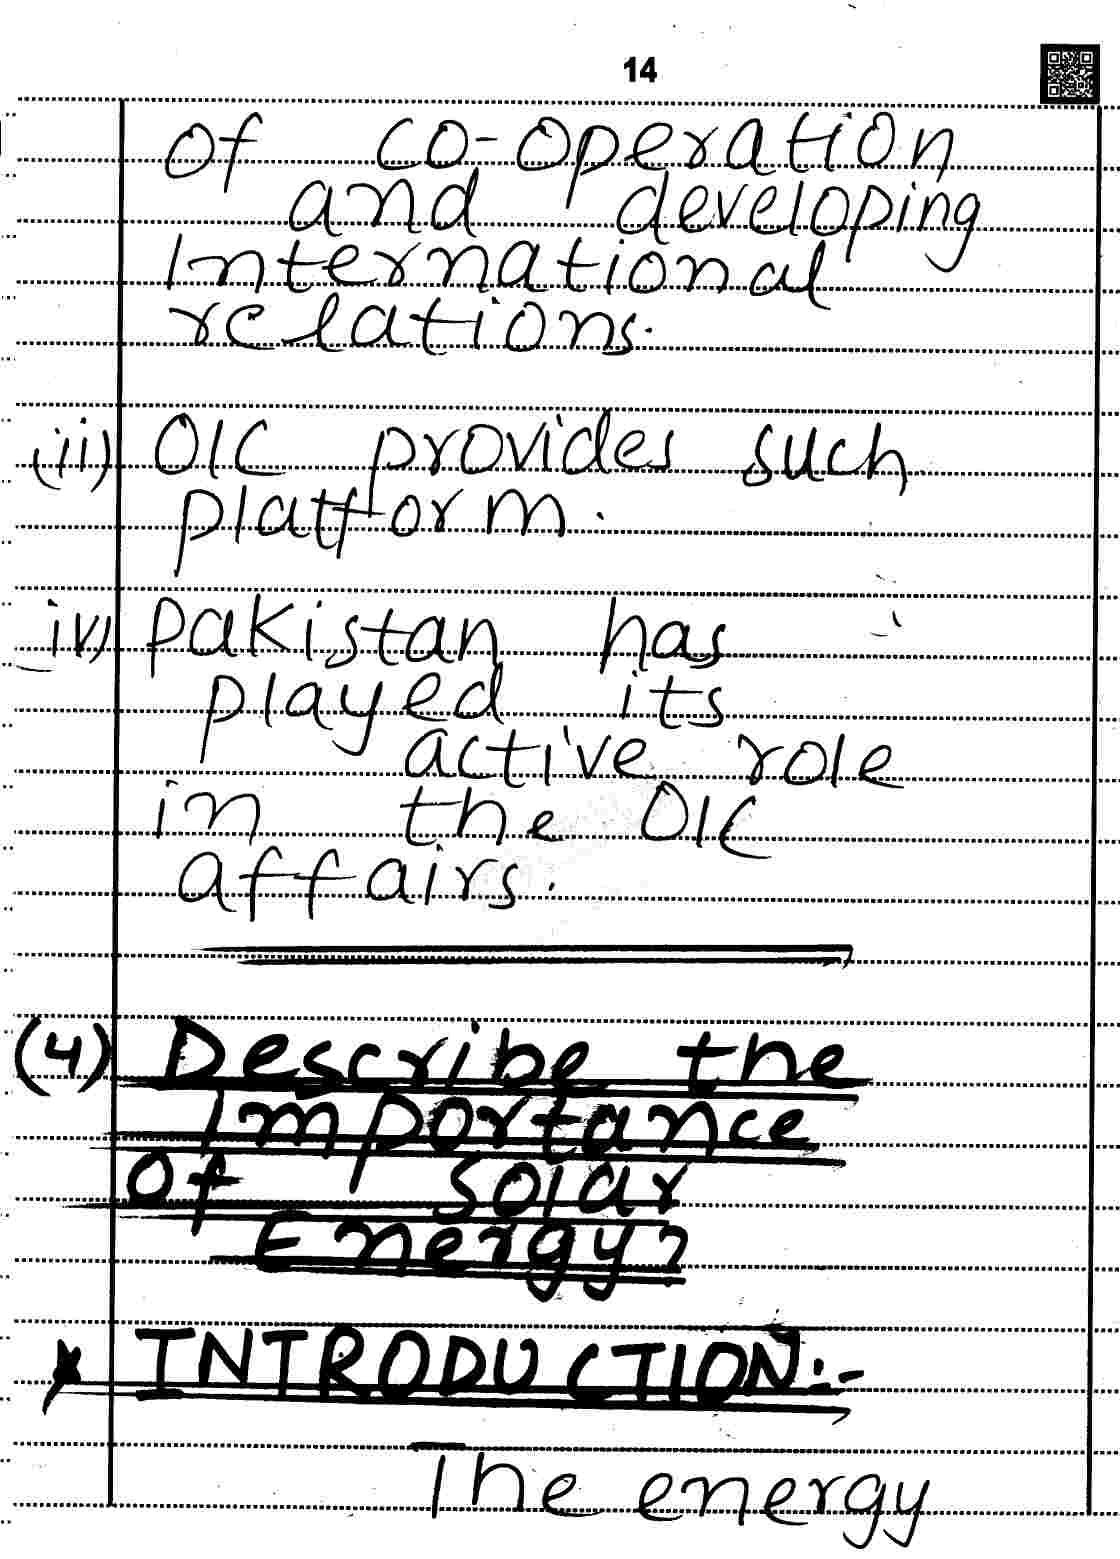 14
of co-operation
and developing
International
relations.
(ii) OIC provides such
platform.
iv) Pakistan has
played its
active role
in the OIC
affairs.
(4) Describe the
Importance
of Solar
Energy?
* INTRODUCTION:-
The energy